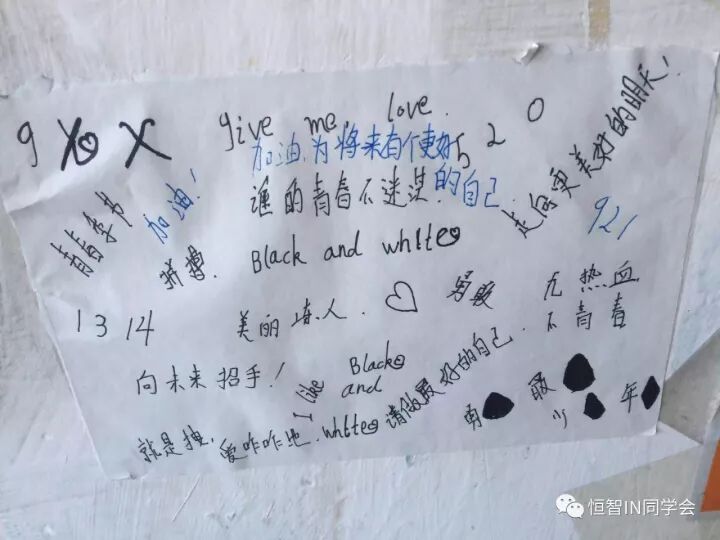 give me love
5 2 0
加油，为将来有个更好的自己
走向更美好的明天！
谁的青春不迷茫.
加油！
921
拼搏.
Black and white
勇敢
无热血
不青春
1 3 14
美丽
人.
♡
向未来招手！
I like Black and white
请做最好的自己.
就是拽,爱咋咋地.
勇敢
少年
恒智IN同学会